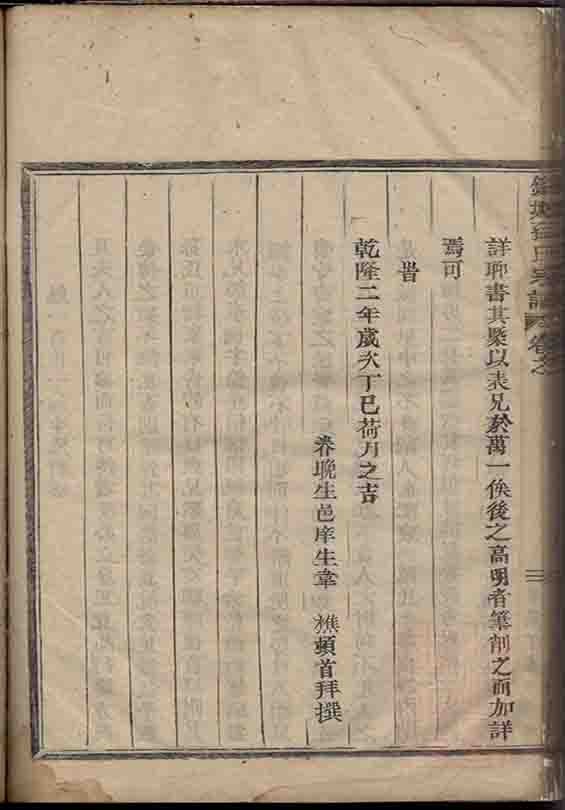 詳聊書其槩以表兄於萬一俟後之高明者筆削之而加詳
焉可
旹
乾隆二年歲次丁巳荷月之吉
眷晚生邑庠生韋 樵頓首拜撰
氏宗譜 卷之